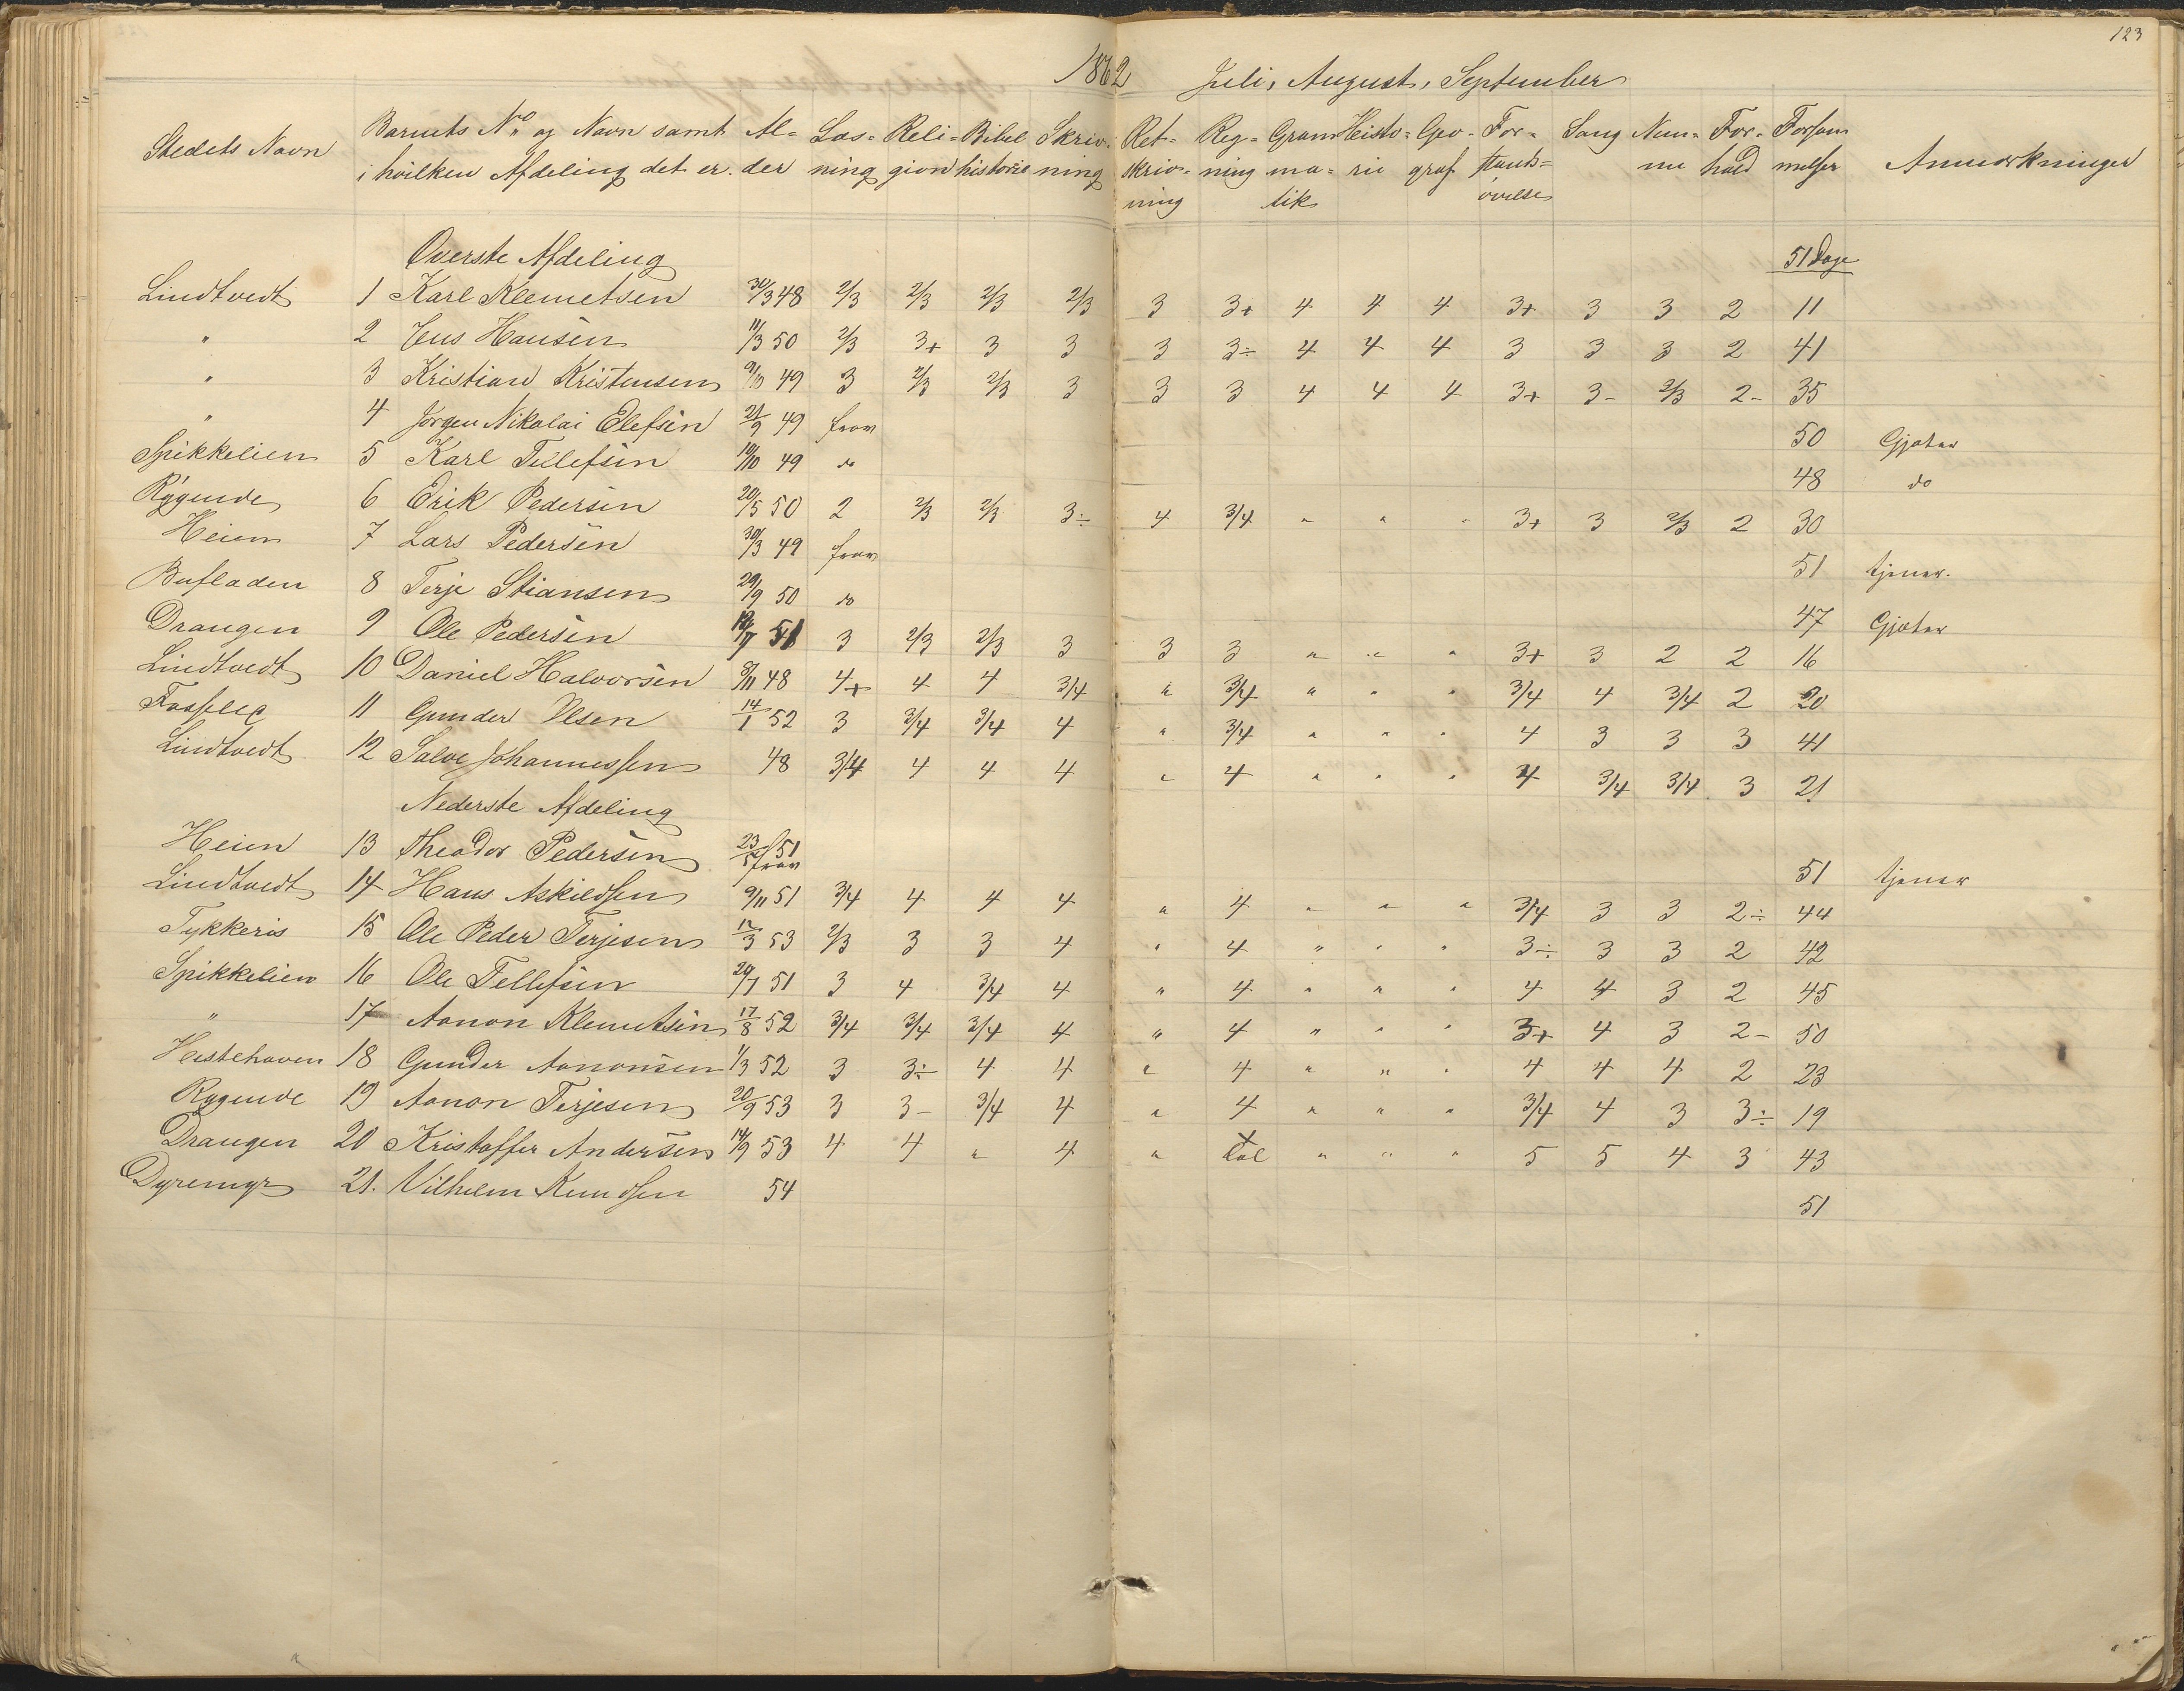 123
1862 Juli, August, September
Stedets Navn Barnets No og Navn samt Al= Læs= Reli= Bibel Skriv= Ret= Reg= Gram Histo= Geo= For= Sang Nem= For= Forsøm
i hvilken Afdeling det er. der ning gion historie ning skriv= ning ma= rie graf stands= me hold melser Anmærkninger
ning tik øvelse
Øverste Afdeling 51 Dage
Lindtvedt 1 Karl Klemetsen 30/3 48 2/3 2/3 2/3 2/3 3 3+ 4 4 4 3+ 3 3 2 11
" 2 Jens Hansen 11/3 50 2/3 3+ 3 3 3 3÷ 4 4 4 3 3 3 2 41
" 3 Kristian Kristensen 9/10 49 3 2/3 2/3 3 3 3 4 4 4 3+ 3- 2/3 2- 35
" 4 Jørgen Nikolai Elefsen 21/9 49 frav 50 Gjæter
Spikkelien 5 Karl Tellefsen 19/10 49 do 48 do
Rygende 6 Erik Pedersen 20/5 50 2 2/3 2/3 3÷ 4 3/4 " " " 3+ 3 2/3 2 30
Heien 7 Lars Pedersen 30/3 49 frav 51 tjener.
Bufladen 8 Terje Stiansen 29/9 50 do 47 Gjæter
Draugen 9 Ole Pedersen 51 3 2/3 2/3 3 3 3 " " " 3+ 3 2 2 16
Lindtvedt 10 Daniel Halvorsen 8/11 48 4+ 4 4 3/4 " 3/4 " " " 3/4 4 3/4 2 20
11 Gunder Olsen 14/1 52 3 3/4 3/4 4 " 3/4 " " " 4 3 3 3 41
Lindtvedt 12 Salve Johannessen 48 3/4 4 4 4 " 4 " " " 4 3/4 3/4 3 21
Nederste Afdeling
Heien 13 Theodor Pedersen 23/5 51 frav 51 tjener
Lindtvedt 14 Hans Askildsen 9/11 51 3/4 4 4 4 " 4 " " " 3/4 3 3 2÷ 44
Tykkeris 15 Ole Peder Terjesen 12/3 53 2/3 3 3 4 " 4 " " " 3÷ 3 3 2 42
Spikkelien 16 Ole Tellefsen 29/7 51 3 4 3/4 4 " 4 " " " 4 4 3 2 45
" 17 Aanon Klemetsen 17/8 52 3/4 3/4 3/4 4 " 4 " " " 3+ 4 3 2- 50
Hestehaven 18 Gunder Aanonsen 1/3 52 3 3÷ 4 4 " 4 " " " 4 4 4 2 23
Rygende 19 Aanon Terjesen 20/9 53 3 3- 3/4 4 " 4 " " " 3/4 4 3 3÷ 19
Draugen 20 Kristoffer Andersen 14/9 53 4 4 " 4 " tal " " " 5 5 4 3 43
Dyremyr 21. Vilhelm Knudsen 54 51